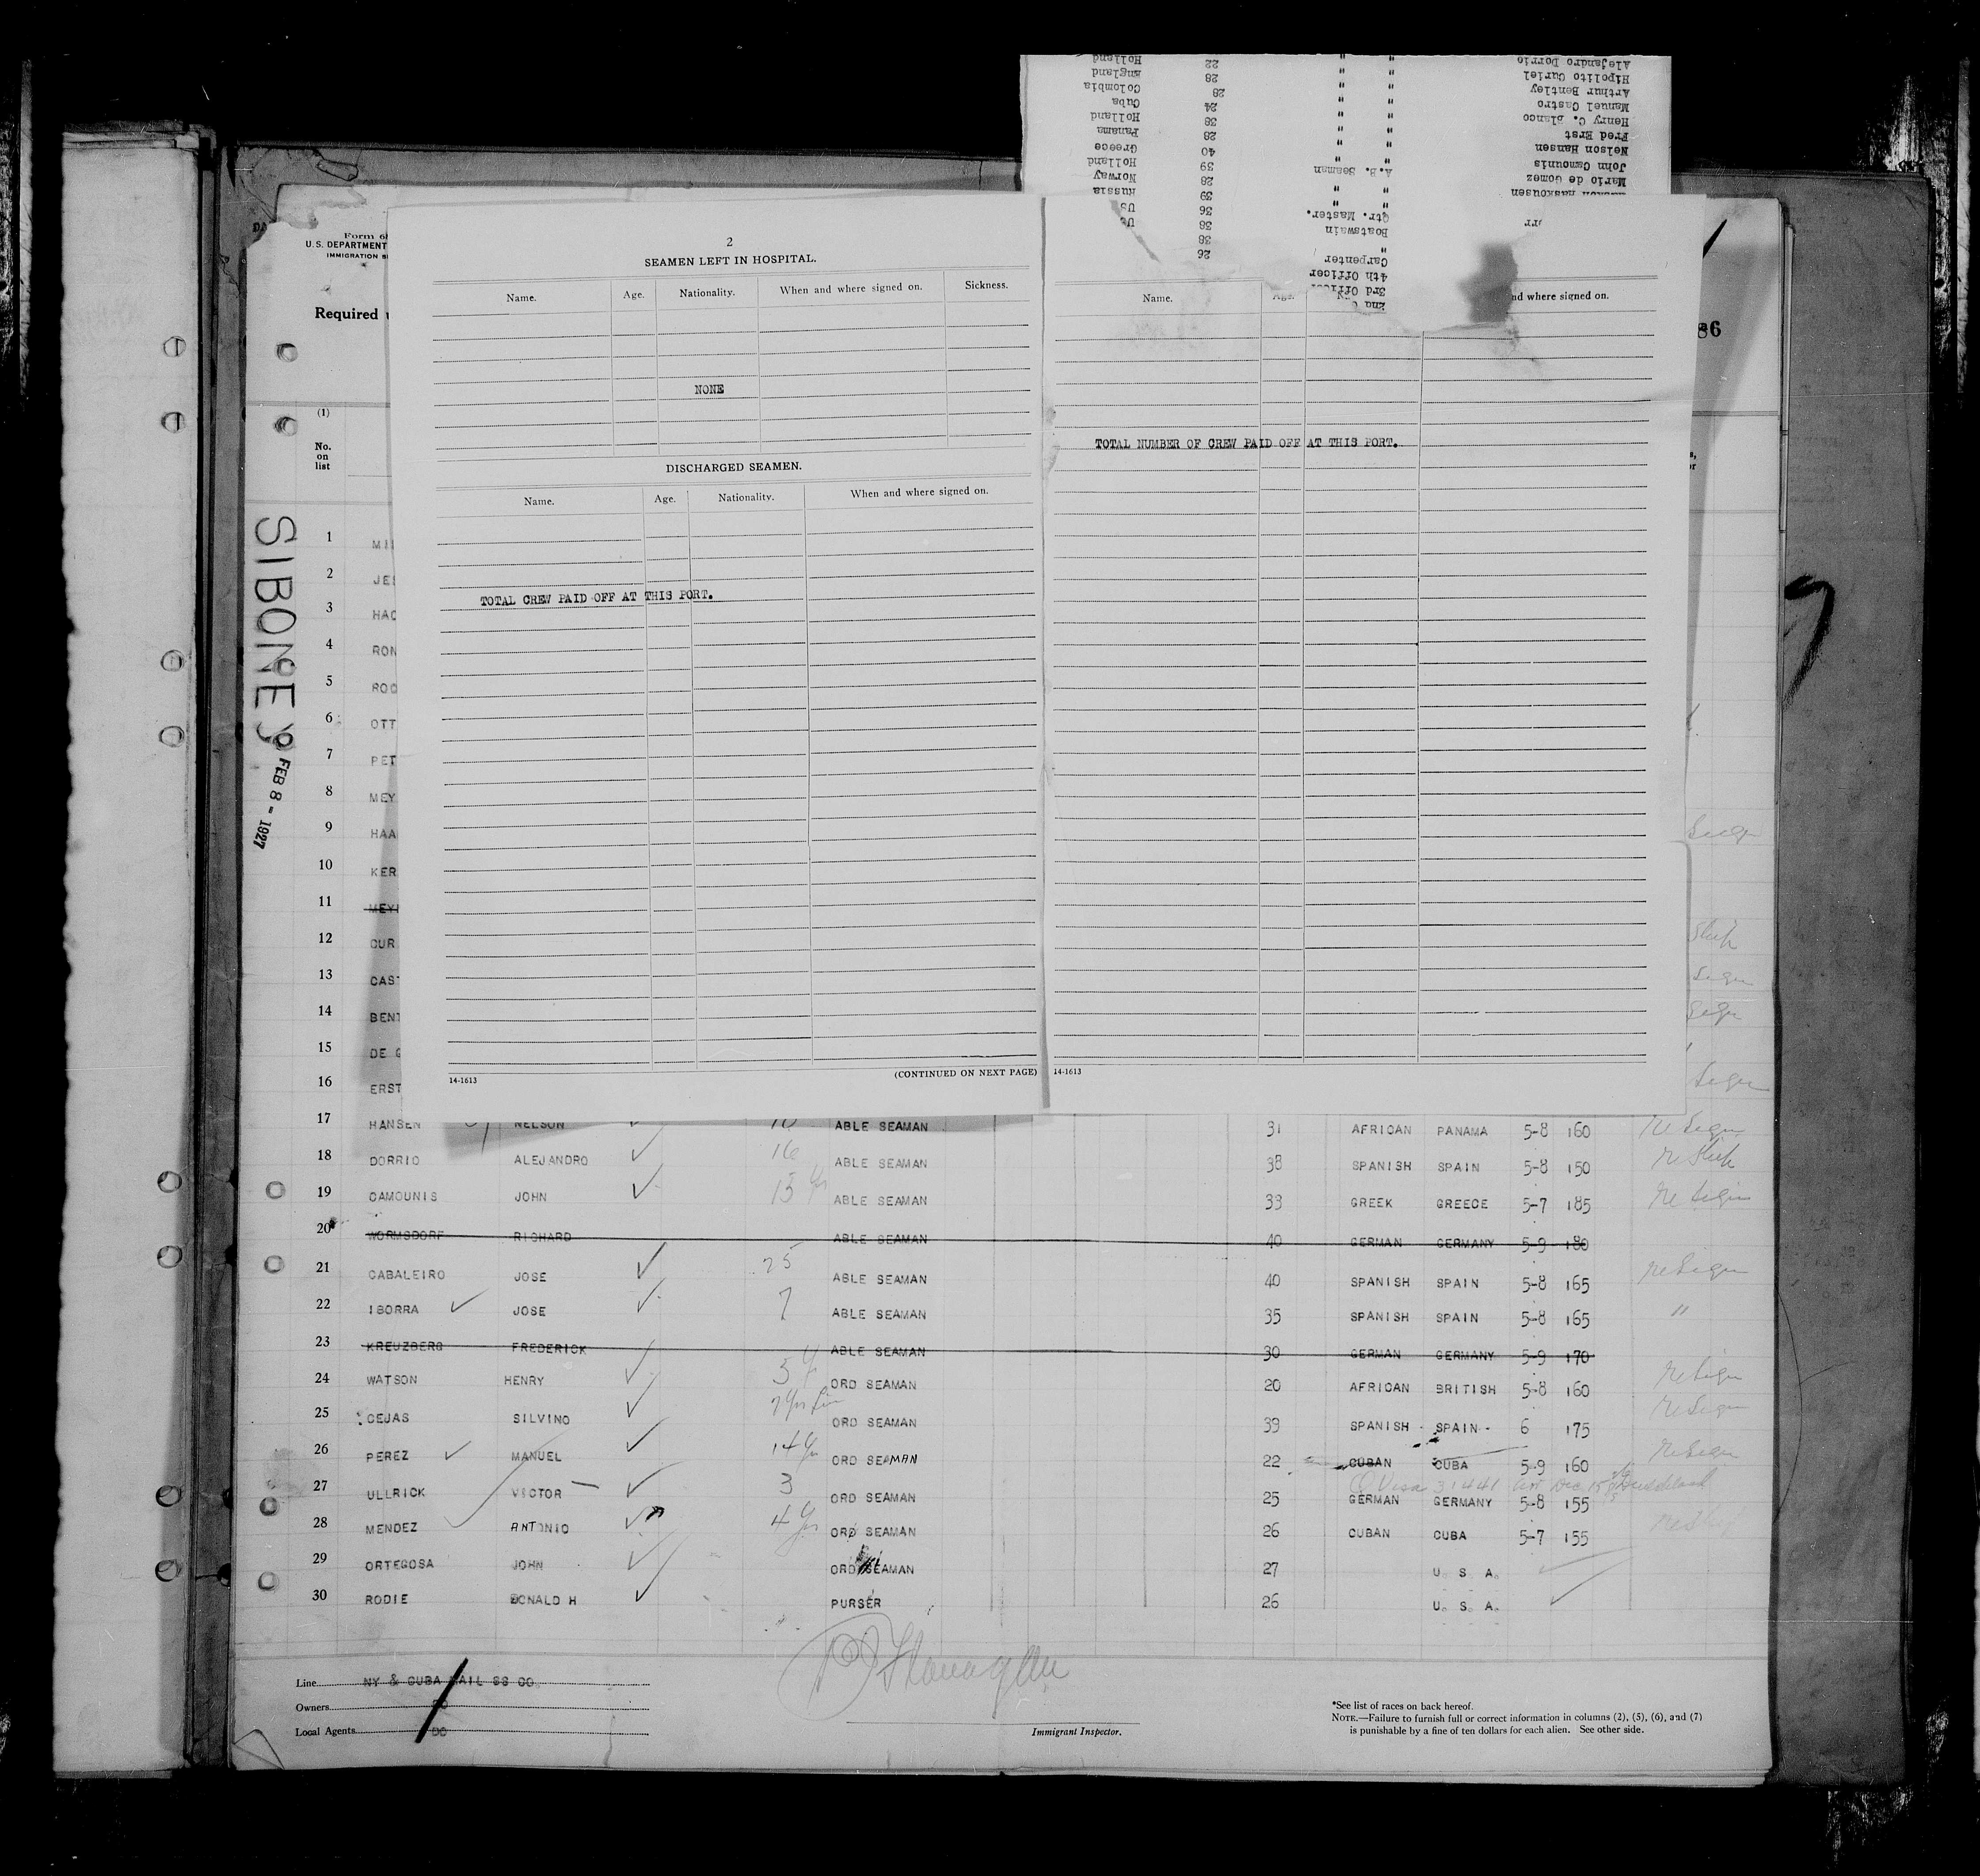 Alejandro Dorrio " 22 Holland
Hipolito Curiel " " 28 England
Arthur Bentley " " 28 Colombia
Manuel Castro " " 24 Cuba
Henry C. Blanco " " 38 Holland
Fred Erst " " 28 Panama
Nelson Hansen " " 40 Greece
John Camounis " " 39 Holland
Mario de Gomez A.B. Seaman 28 Norway
" " 39 Russia
Qtr. Master. 36 US
Boatswain 38 US
" 38
Carpenter 26
4th Officer
3rd Officer
2nd
Form 68
U.S. DEPARTMENT
IMMIGRATION S
Required
86
(1)
No.
on
list
2
SEAMEN LEFT IN HOSPITAL.
Name. Age. Nationality. When and where signed on. Sickness.
NONE
DISCHARGED SEAMEN.
Name. Age. Nationality. When and where signed on.
TOTAL CREW PAID OFF AT THIS PORT.
14-1613 (CONTINUED ON NEXT PAGE)
Name. Age. nd where signed on.
TOTAL NUMBER OF CREW PAID OFF AT THIS PORT.
14-1613
SIBONEY
FEB 8 - 1927
1 MI
2 JE
3 HAC
4 RON
5 ROC
6 OTT
7 PET
8 MEY
9 HAA
10 KER
11 MEY
12 CUR
13 CAST
14 BENT
15 DE G
16 ERST
17 HANSEN NELSON 10 ABLE SEAMAN 31 AFRICAN PANAMA 5-8 160
18 DORRIO ALEJANDRO 16 ABLE SEAMAN 38 SPANISH SPAIN 5-8 150
19 CAMOUNIS JOHN 15 ABLE SEAMAN 33 GREEK GREECE 5-7 185
20 WORMSDORF RICHARD ABLE SEAMAN 40 GERMAN GERMANY 5-9 180
21 CABALEIRO JOSE 25 ABLE SEAMAN 40 SPANISH SPAIN 5-8 165
22 IBORRA JOSE 7 ABLE SEAMAN 35 SPANISH SPAIN 5-8 165 "
23 KREUZBERG FREDERICK ABLE SEAMAN 30 GERMAN GERMANY 5-9 170
24 WATSON HENRY 5 ORD SEAMAN 20 AFRICAN BRITISH 5-8 160
25 CEJAS SILVINO ORD SEAMAN 39 SPANISH SPAIN 6 175
26 PEREZ MANUEL 14 ORD SEAMAN 22 CUBAN CUBA 5-9 160
27 ULLRICK VICTOR 3 ORD SEAMAN 25 GERMAN GERMANY 5-8 155
28 MENDEZ ANTONIO 4 ORD SEAMAN 26 CUBAN CUBA 5-7 155
29 ORTEGOSA JOHN ORD SEAMAN 27 U. S. A.
30 RODIE DONALD H PURSER 26 U. S. A.
Flanagan
Line NY & CUBA MAIL SS CO
Owners DO
Local Agents DO
Immigrant Inspector.
*See list of races on back hereof.
NOTE.—Failure to furnish full or correct information in columns (2), (5), (6), and (7)
is punishable by a fine of ten dollars for each alien. See other side.